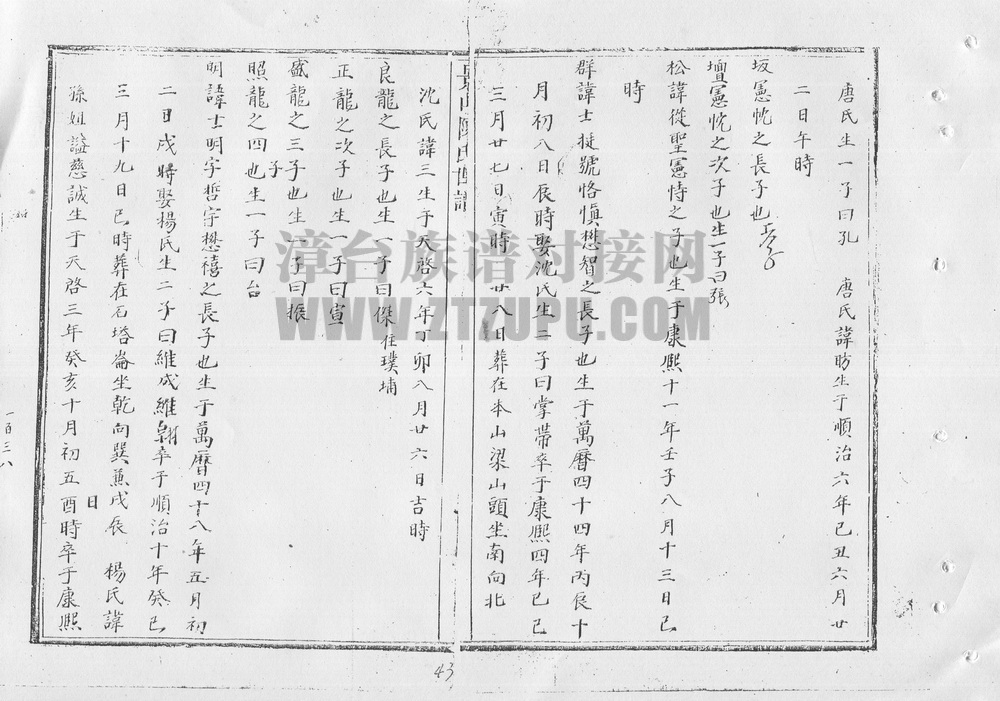 唐氏生一子曰孔　唐氏諱昉生于順治六年己丑六月廿
二日午時
坂憲忱之長子也
壇憲忱之次子也生一子曰張
松諱從聖憲恃之子也生于康熙十一年壬子八月十三日巳
時
群諱士挺號恪慎懋智之長子也生于萬曆四十四年丙辰十
月初八日辰時娶沈氏生二子曰掌帶卒于康熙四年乙巳
三月廿七日寅時廿八日葬在本山梁山頭坐南向北
陳氏世譜
沈氏諱三生于天啓六年丁卯八月廿六日吉時
良龍之長子也生一子曰傑在璞埔
正龍之次子也生一子曰宣
盛龍之三子也生一子曰振
照龍之四子也生一子曰台
明諱士明字哲宇懋禧之長子也生于萬曆四十八年五月初
二日戌時娶楊氏生二子曰維成維翱卒于順治十年癸巳
三月十九日巳時葬在石塔崙坐乾向巽兼戌辰　楊氏諱
孫姐謚慈誠生于天啓三年癸亥十月初五日酉時卒于康熙
一百三八
43
漳台族谱对接网
WWW.ZTZUPU.COM